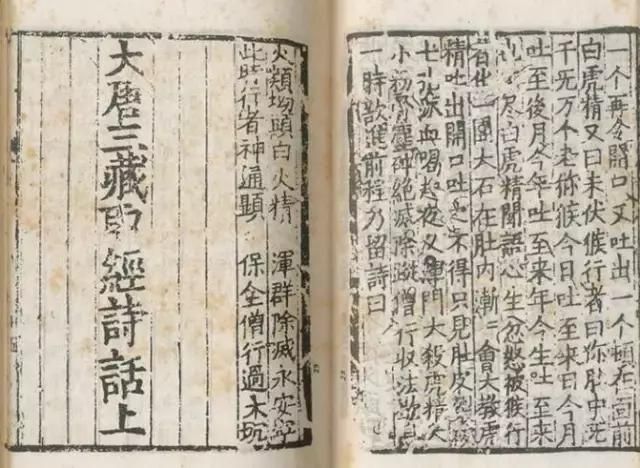 一个再令開口又吐出一个頓在面前
白虎精又曰未伏候行者曰你肚中无
千无万个老弥猴今日吐至來日今月
吐至後月今年吐至来年今生吐至来
生 尽白虎精聞語心生忿怒被猴行
者化一團大石在肚内漸〻會大教虎
精吐出開口吐之不得只見肚皮
七孔流血喝起夜叉渾門大殺虎精大
小粉骨塵碎絶滅除蹤僧行収法歇息
一時欲進前程乃留詩曰
火類坳頭白火精 渾群除滅永安寧
此時行者神通顯 保全僧行過大坑
大唐三藏取經詩話上